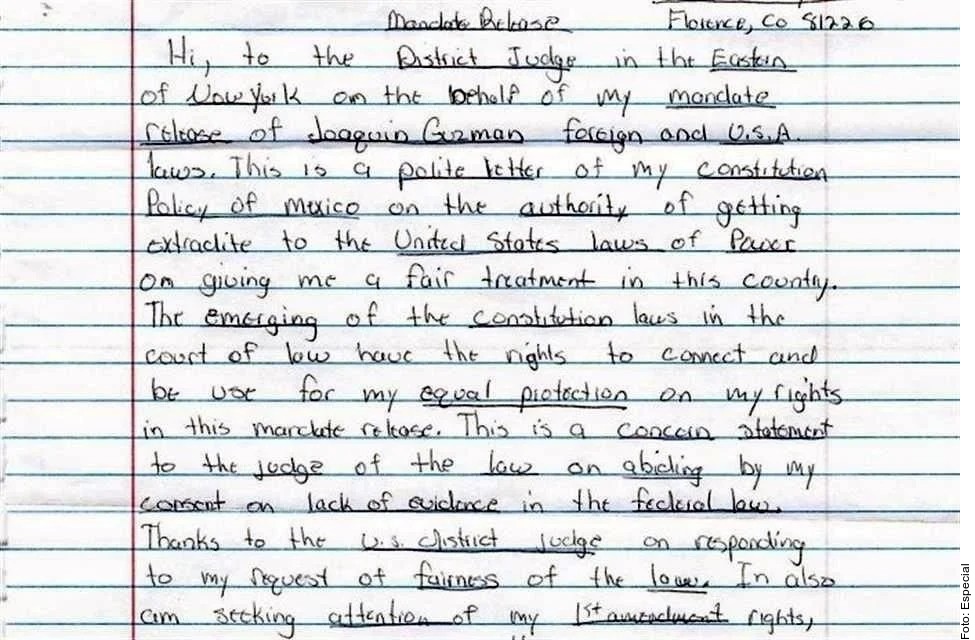 Mandate Release Florence, Co 81226
Hi, to the District Judge in the Eastern
of New York om the behalf of my mandate
release of Joaquin Guzman foreign and U.S.A.
laws. This is a polite letter of my constitution
Policy of mexico on the authority of getting
extradite to the United States laws of Power
on giving me a fair treatment in this country.
The emerging of the constitution laws in the
court of law have the rights to connect and
be use for my equal protection on my rights
in this mandate release. This is a concern statement
to the judge of the law on abiding by my
consent on lack of evidence in the federal law.
Thanks to the U.S. district judge on responding
to my request of fairness of the law. In also
am seeking attention of my 1st amendment rights,
Foto: Especial